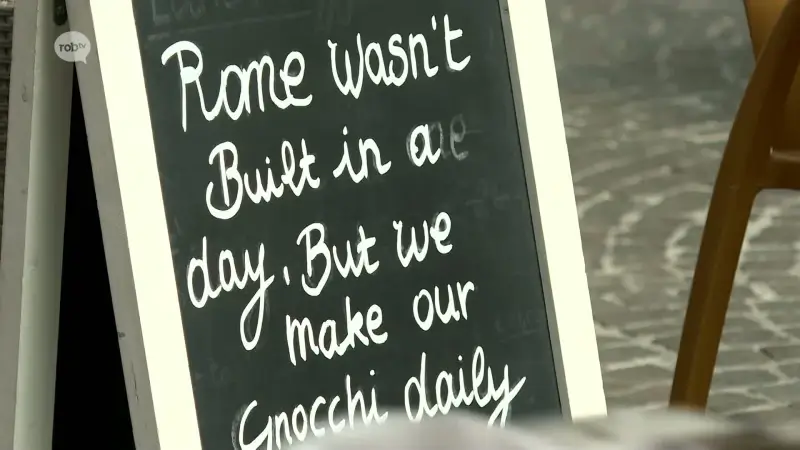 robtv
Rome wasn't
Built in a
day. But we
make our
Gnocchi daily